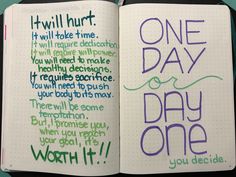 It will hurt.
It will take time.
It will require dedication.
It will require willpower.
You will need to make
healthy decisions.
It requires sacrifice.
You will need to push
your body to its max.
There will be some
temptation.
But, I promise you,
when you reach
your goal, it's
WORTH IT!!
ONE
DAY
or
DAY
ONE
you decide.